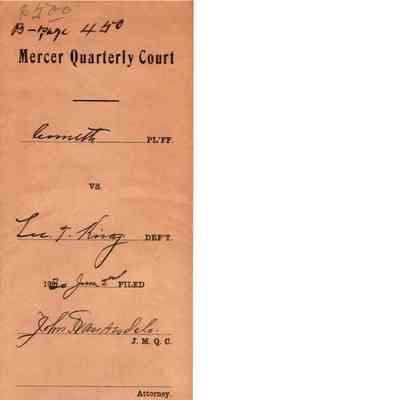 B-page 450
Mercer Quarterly Court
Comlth PL'FF.
VS.
Lee. T. King DEF'T.
June 2nd FILED
John
J. M. Q. C.
Attorney.